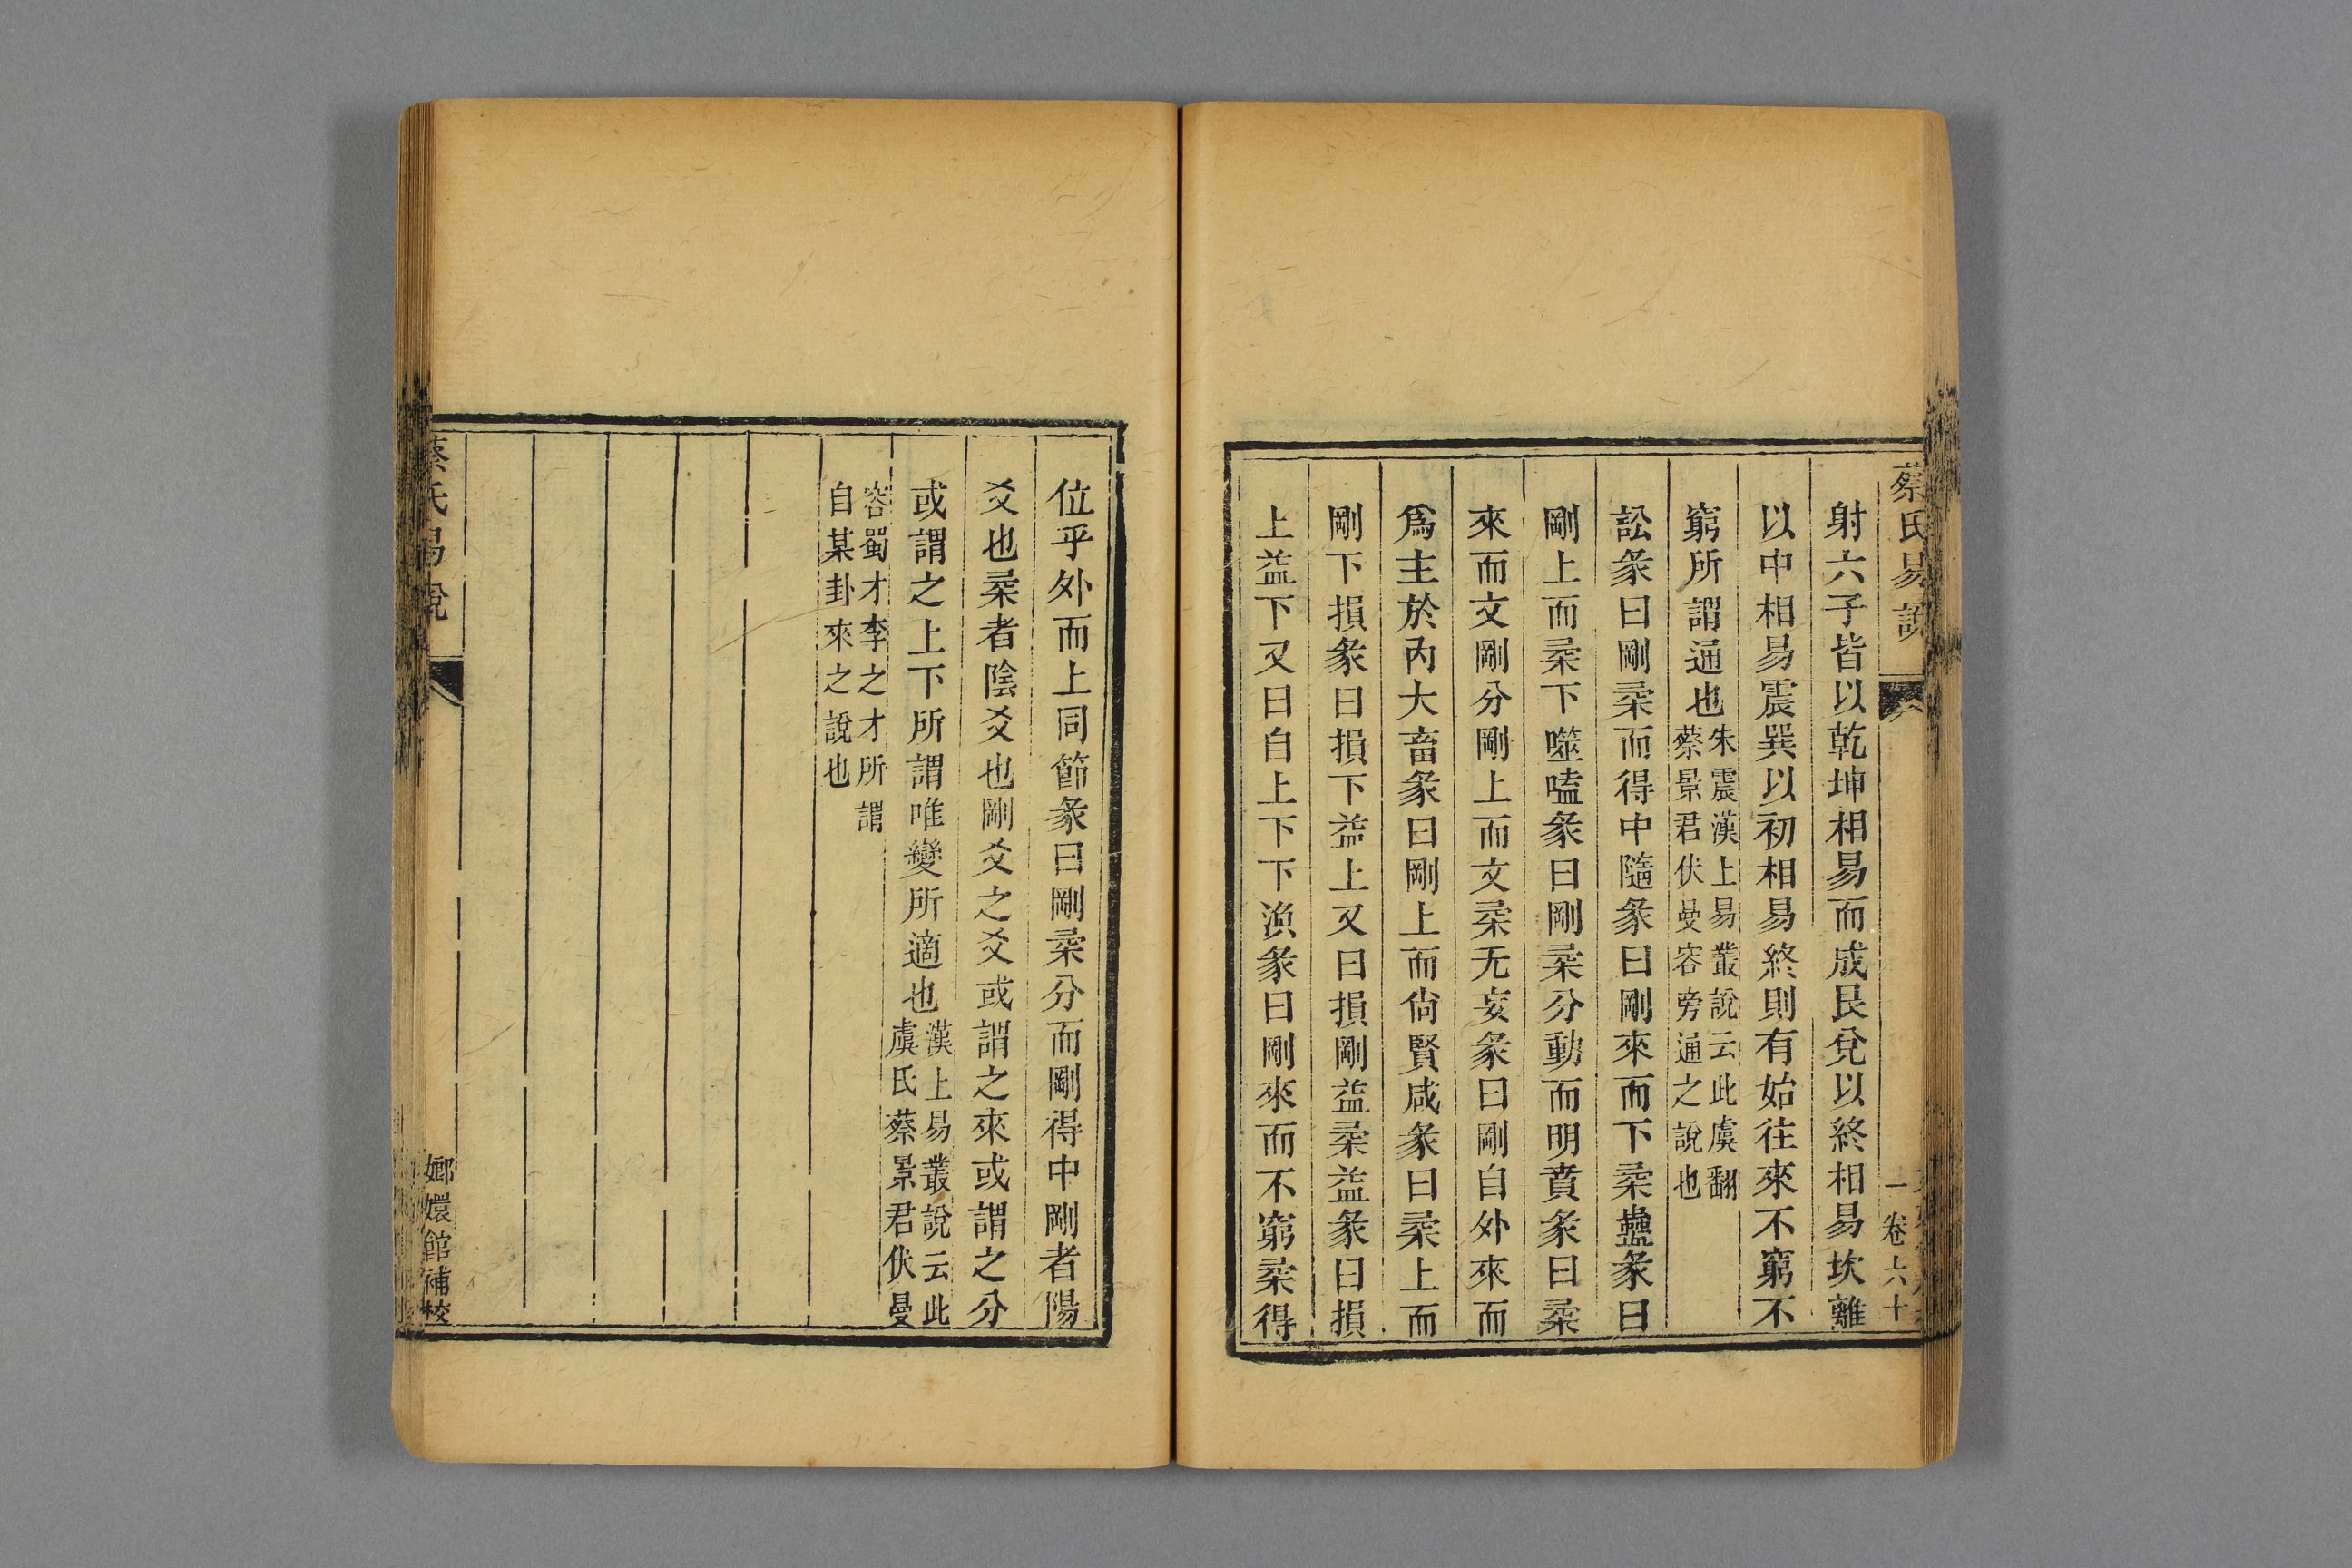 蔡氏易說
一 卷六十
射六子皆以乾坤相易而成艮兌以終相易坎離
以中相易震巽以初相易終則有始往來不窮不
窮所謂通也朱震漢上易叢說云此虞翻
蔡景君伏曼容旁通之說也
訟彖曰剛柔而得中隨彖曰剛來而下柔蠱彖曰
剛上而柔下噬嗑彖曰剛柔分動而明賁彖曰柔
來而文剛分剛上而文柔无妄彖曰剛自外來而
爲主於內大畜彖曰剛上而尙賢咸彖曰柔上而
剛下損彖曰損下益上又曰損剛益柔益彖曰損
上益下又曰自上下下渙彖曰剛來而不窮柔得
位乎外而上同節彖曰剛柔分而剛得中剛者陽
爻也柔者陰爻也剛爻之爻或謂之來或謂之分
或謂之上下所謂唯變所適也漢上易叢說云此
虞氏蔡景君伏曼
容蜀才李之才所謂
自某卦來之說也
蔡氏易說
嫏嬛館補校